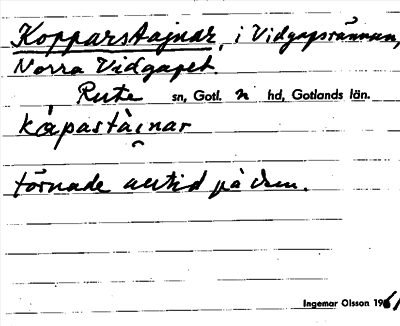 Kopparstajnar, i Vidgapsrännan,
Norra Vidgapet.
Rute sn, Gotl. n hd, Gotlands län.
kåpastàinar
törnade alltid på dem.
Ingemar Olsson 1961